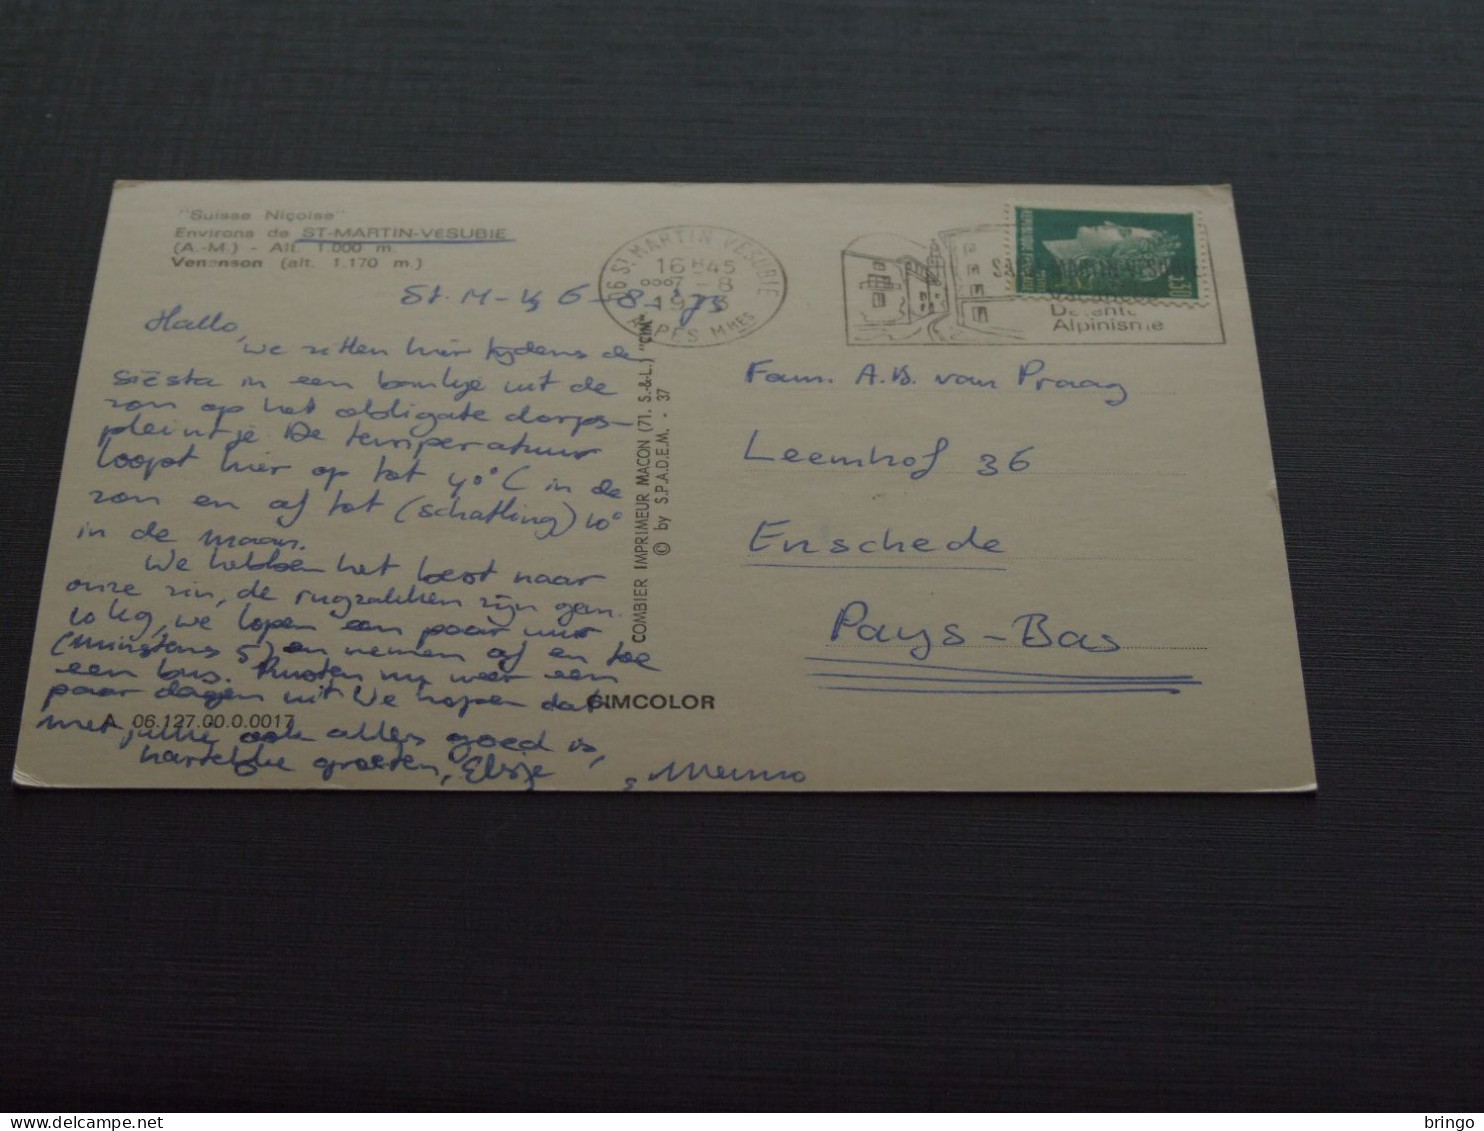 "Suisse Niçoise"
Environs de ST-MARTIN-VéSUBIE
(A.-M.) - Alt. 1.000 m.
Venanson (alt. 1.170 m.)
St. M-V, 6-8-'73
Hallo,
we zitten hier tijdens de
siësta in een bankje uit de
zon op het obligate dorps-
pleintje. De temperatuur
loopt hier op tot 40°C in de
zon en af tot (schatting) 10°
in de maan.
We hebben het best naar
onze zin, de rugzakken zijn gem.
10 kg, we lopen een paar uur
(minstens 5) en nemen af en toe
een bus. Rusten nu weer een
paar dagen uit. We hopen dat
met jullie ook alles goed is,
hartelijke groeten, Elsje
, Menno
A 06.127.00.0.0017
CIMCOLOR
COMBIER IMPRIMEUR MACON (71. S.-&-L.) "CIM"
© by S.P.A.D.E.M. - 37
06 ST MARTIN VESUBIE
16 H 45
7 - 8
1973
ALPES MMES
SAINT MARTIN VESUBIE
Détente
Alpinisme
0.30
Fam. A.B. van Praag
Leemhof 36
Enschede
Pays-Bas
delcampe.net
bringo